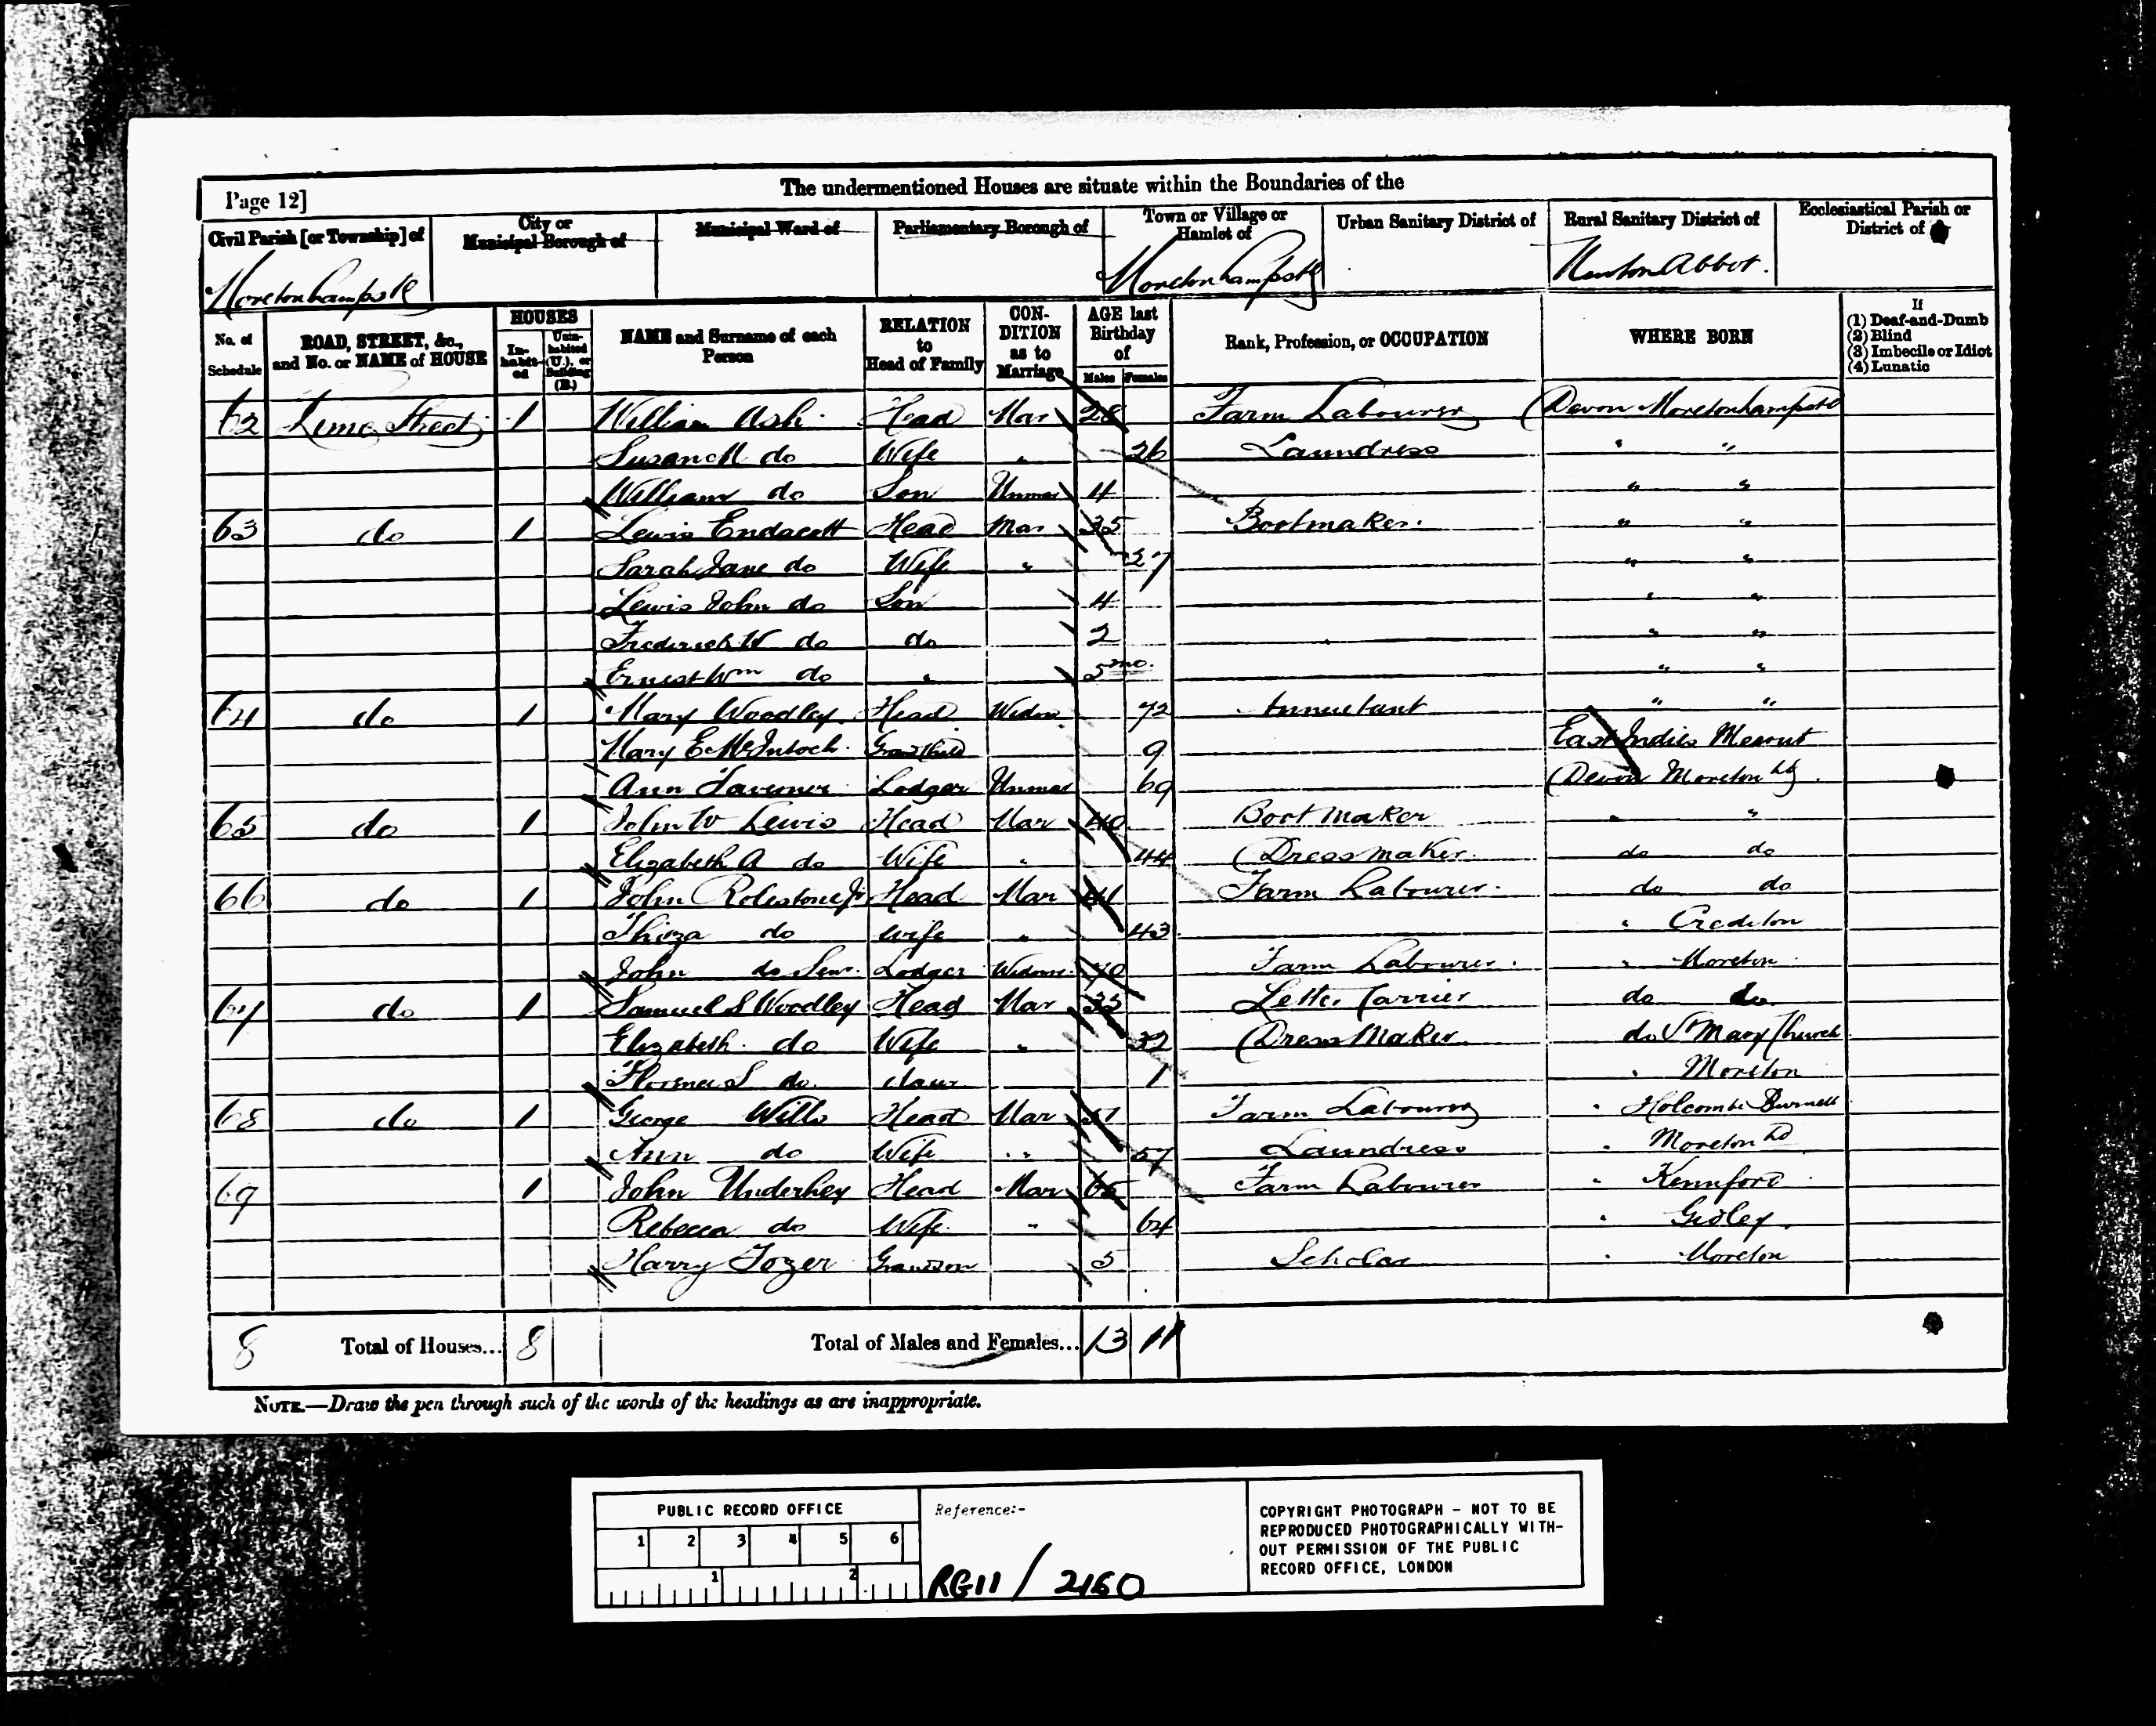 Page 12]
The undermentioned Houses are situate within the Boundaries of the
Civil Parish [or Township] of
City or Municipal Borough of
Municipal Ward of
Parliamentary Borough of
Town or Village or Hamlet of
Urban Sanitary District of
Rural Sanitary District of
Ecclesiastical Parish or District of
Moretonhampstd Moretonhampstd Newton Abbot.
No. of Schedule
ROAD, STREET, &c., and No. or NAME of HOUSE
HOUSES
In-habit-ed
Unin-habited (U.), or Building (B.)
NAME and Surname of each Person
RELATION to Head of Family
CON-DITION as to Marriage
AGE last Birthday of
Males Females
Rank, Profession, or OCCUPATION
WHERE BORN
If
(1) Deaf-and-Dumb
(2) Blind
(3) Imbecile or Idiot
(4) Lunatic
62 Lime Street 1 William Ash Head Mar 28 Farm Labourer Devon Moretonhampstd
Susan M do Wife " 26 Laundress " "
William do Son Unmar 4 " "
63 do 1 Lewis Endacott Head Mar 35 Bootmaker. " "
Sarah Jane do Wife " 27 " "
Lewis John do Son 4 " "
Frederick W do do 2 " "
Ernest Wm do " 5 mo. " "
64 do 1 Mary Woodley Head Widow 72 Annuitant " "
Mary E McIntoch Grandchild 9 East Indies Meerut
Ann Taverner Lodger Unmar 69 Devon Moreton
65 do 1 John W Lewis Head Mar 40 Boot Maker " "
Elizabeth A do Wife " 44 Dressmaker do do
66 do 1 John Rolestone Jr Head Mar 41 Farm Labourer. do do
Thirza do Wife " 43 " Crediton
John do Senr. Lodger Widowr. 70 Farm Labourer. " Moreton
67 do 1 Samuel S Woodley Head Mar 33 Letter Carrier do do
Elizabeth do Wife " 32 Dress Maker do St Mary Church
S do. daur 1 " Moreton
68 do 1 George Wills Head Mar Farm Labourer " Holcombe Burnell
Ann do Wife " 57 Laundress " Moreton Hd
69 1 John Underhey Head Mar Farm Labourer " Kennford
Rebecca do Wife " 64 " Gidley.
Harry Tozer Grandson 5 Scholar " Moreton
8 Total of Houses... 8 Total of Males and Females... 13 11
NOTE.—Draw the pen through such of the words of the headings as are inappropriate.
PUBLIC RECORD OFFICE
1 2 3 4 5 6
1 2
Reference:-
RG11 / 2160
COPYRIGHT PHOTOGRAPH - NOT TO BE
REPRODUCED PHOTOGRAPHICALLY WITH-
OUT PERMISSION OF THE PUBLIC
RECORD OFFICE, LONDON